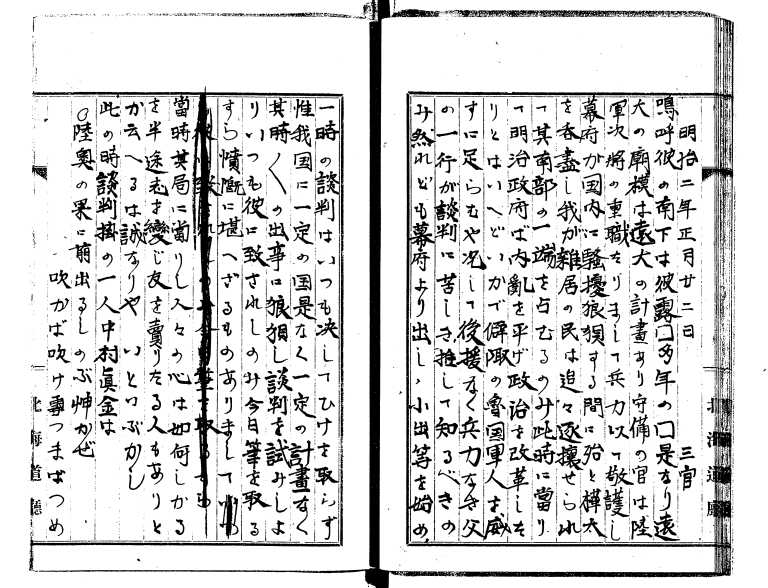 明治二年正月廿二日　三官
嗚呼彼の南下は彼露囗多年の囗是なり遠
大の廟模は遠大の計畫あり守備の官は陸
軍次将の重職たりまして兵力以て敬護し
幕府が国内に騒擾狼狽する間に殆と樺太
を呑盡し我が雜居の民は追々逐攘せられ
て其南部の一端を占むるのみ此時に當り
て明治政府ば内亂を平げ政治を改革しそ
りとはいへどいかで僻陬の魯国軍人を威
すに足らむや况して後援なく兵力なき父
の一行が談判に苦しき推して知るべきの
み然れども幕府より出しゝ小出等を始め、
一時の談判はいつも决してひけを取らず
惟我国に一定の国是なく一定の計畫なく
其時〱の出事に狼狽し談判を試みしよ
りいつも彼に致されしのみ今日筆を取る
すら憤慨に堪へざるものありまして
當時其局に當りし人々の心は如何しかる
を半途志を變じ友を賣りたる人もありと
か云へるは誠なりや　いといぶかし
此の時談判掛の一人中村眞金は
○陸奥の果に萠出るしのぶ艸かぜ
吹かば吹け雪つまばつめ
北海道廳
北海道廳